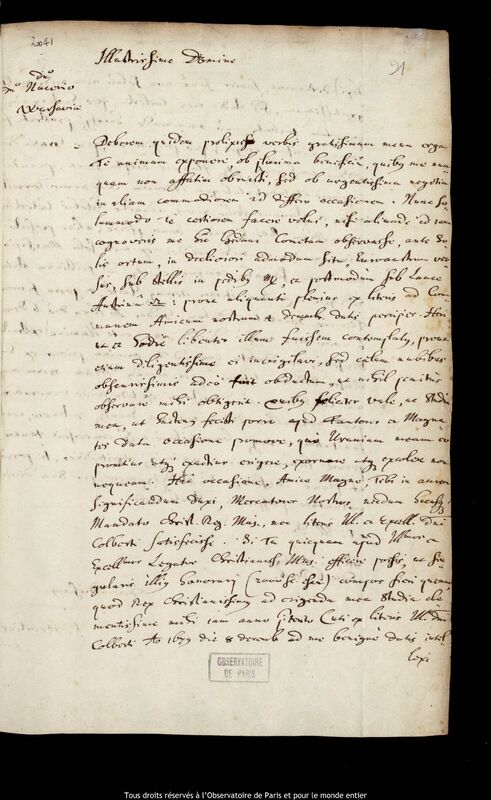 2041
21
Illustrissime Domine
dno
Dno Nucerio
Warsaviæ
Deberem quidem prolixis verbis gratissimum meum erga
Te animum exponere, ob plurima beneficia, quibus me nun
quam non affatim obruisti, sed ob urgentissima negotia
in aliam commodiorem id differo occasionem. Nunc so
lummodo Te certiorem facere volui, nisi aliunde id iam
cognoveris me hic Gedani Cometam observasse, ante So
lis ortum, in decliviori admodum situ, Euroaustrum ver
sus, sub stellis in pedibus ♍, ac postmodum sub Lance
Austrina ♎; prout aliquanto plenius ex literis ad Com
munem Amicum nostrum 4 decemb. datis percipies. Heri
ut et hodie libenter illum fuissem contemplatus, prout
etiam diligentissime ei invigilavi, sed cœlum nubibus
obscurissimis adeo fuit obductum, ut nihil penitus
observare mihi obtigerit. Quibus feliciter vale, ac studia
mea, ut hactenus fecisti porro apud Fautores et Magna
tes data occasione promove, quo Uraniam meam eo
promtius atque exactius erigere, exornare atque excolere non
nequeam. Hac occasione, Amice Magne, Tibi in aurem
significandum duxi, Mercatores Nostros nondum
Mandato Christ. Reg. Maj. nec literis Ill. ac Excell. Dni
Colberti satisfecisse. Si Tu quicquam apud Illmos ac
Excellmos Legatos Christianiss. Maj. efficere possis, ut sin
gularis illius honorarij compos fieri queam
quod Rex Christianissimus ad erigenda mea studia cle
mentissime mihi iam anno ex literis Ill. Dni
Colberti Ao 1679 die 8 decemb ad me benigne datis intel
lexi
OBSERVATOIRE
DE PARIS
Tous droits réservés à l'Observatoire de Paris et pour le monde entier